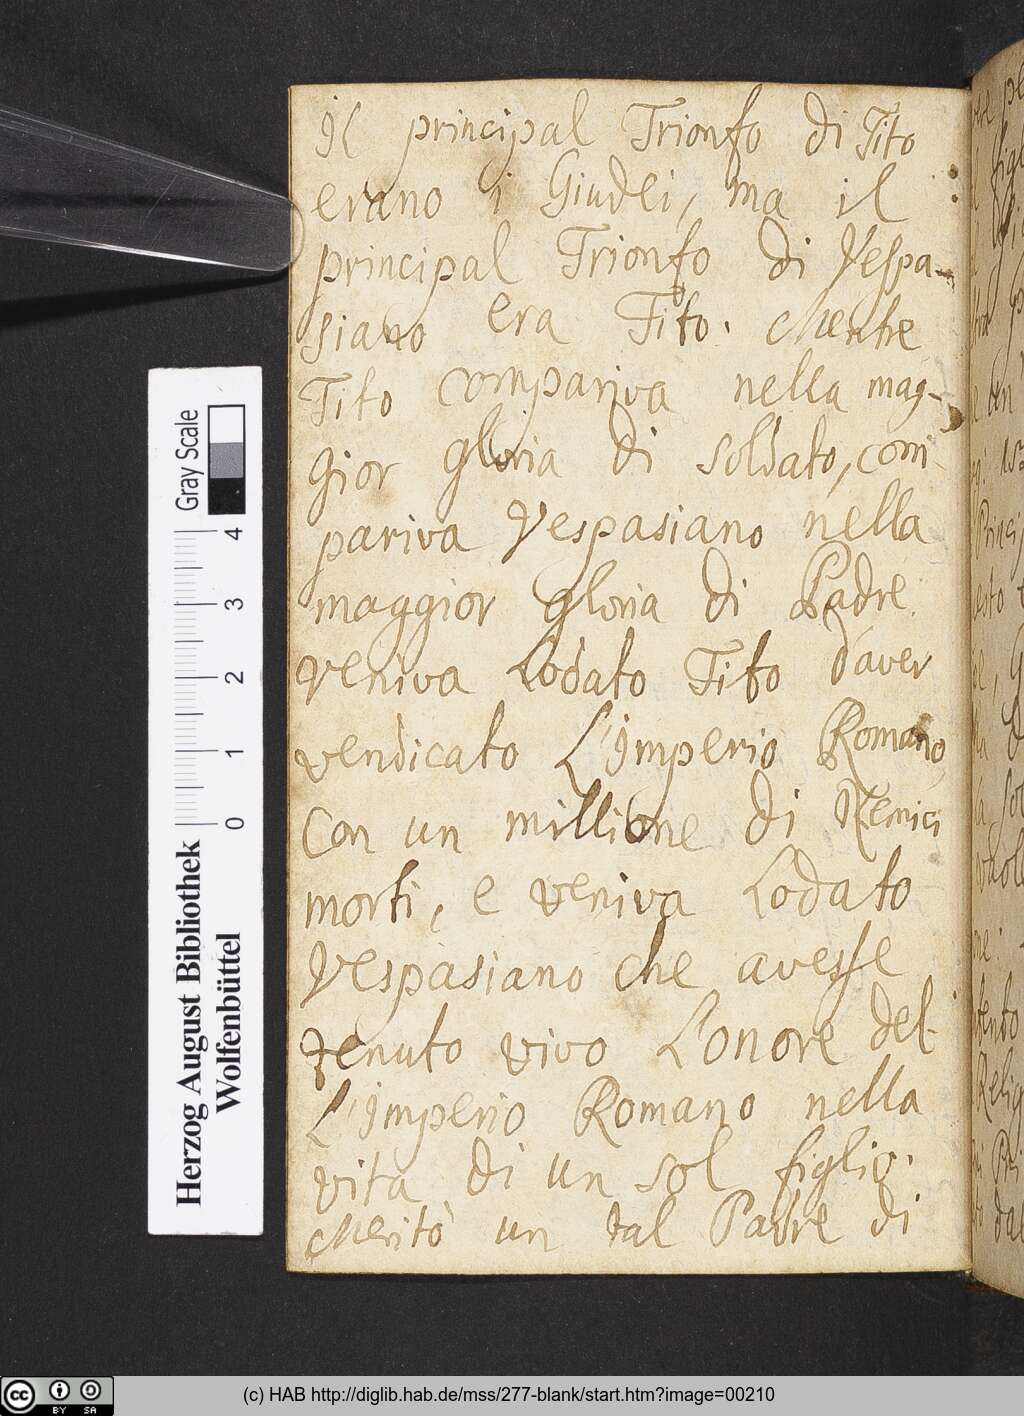 Il principal Trionfo di Tito
erano i Giudei, ma il
principal Trionfo di Vespa-
siano era Tito. Mentre
Tito compariva nella mag-
gior gloria di soldato, com-
pariva Vespasiano nella
maggior gloria di Padre.
veniva Lodato Tito d'aver
vendicato L'Imperio Romano,
con un millione di Nemici
morti, e veniva Lodato
Vespasiano che avesse
tenuto vivo L'onore del-
L'Imperio Romano nella
vita di un sol figlio.
Meritò un tal Padre di
Gray Scale
0 1 2 3 4
Herzog August Bibliothek
Wolfenbüttel
cc BY SA
(c) HAB http://diglib.hab.de/mss/277-blank/start.htm?image=00210